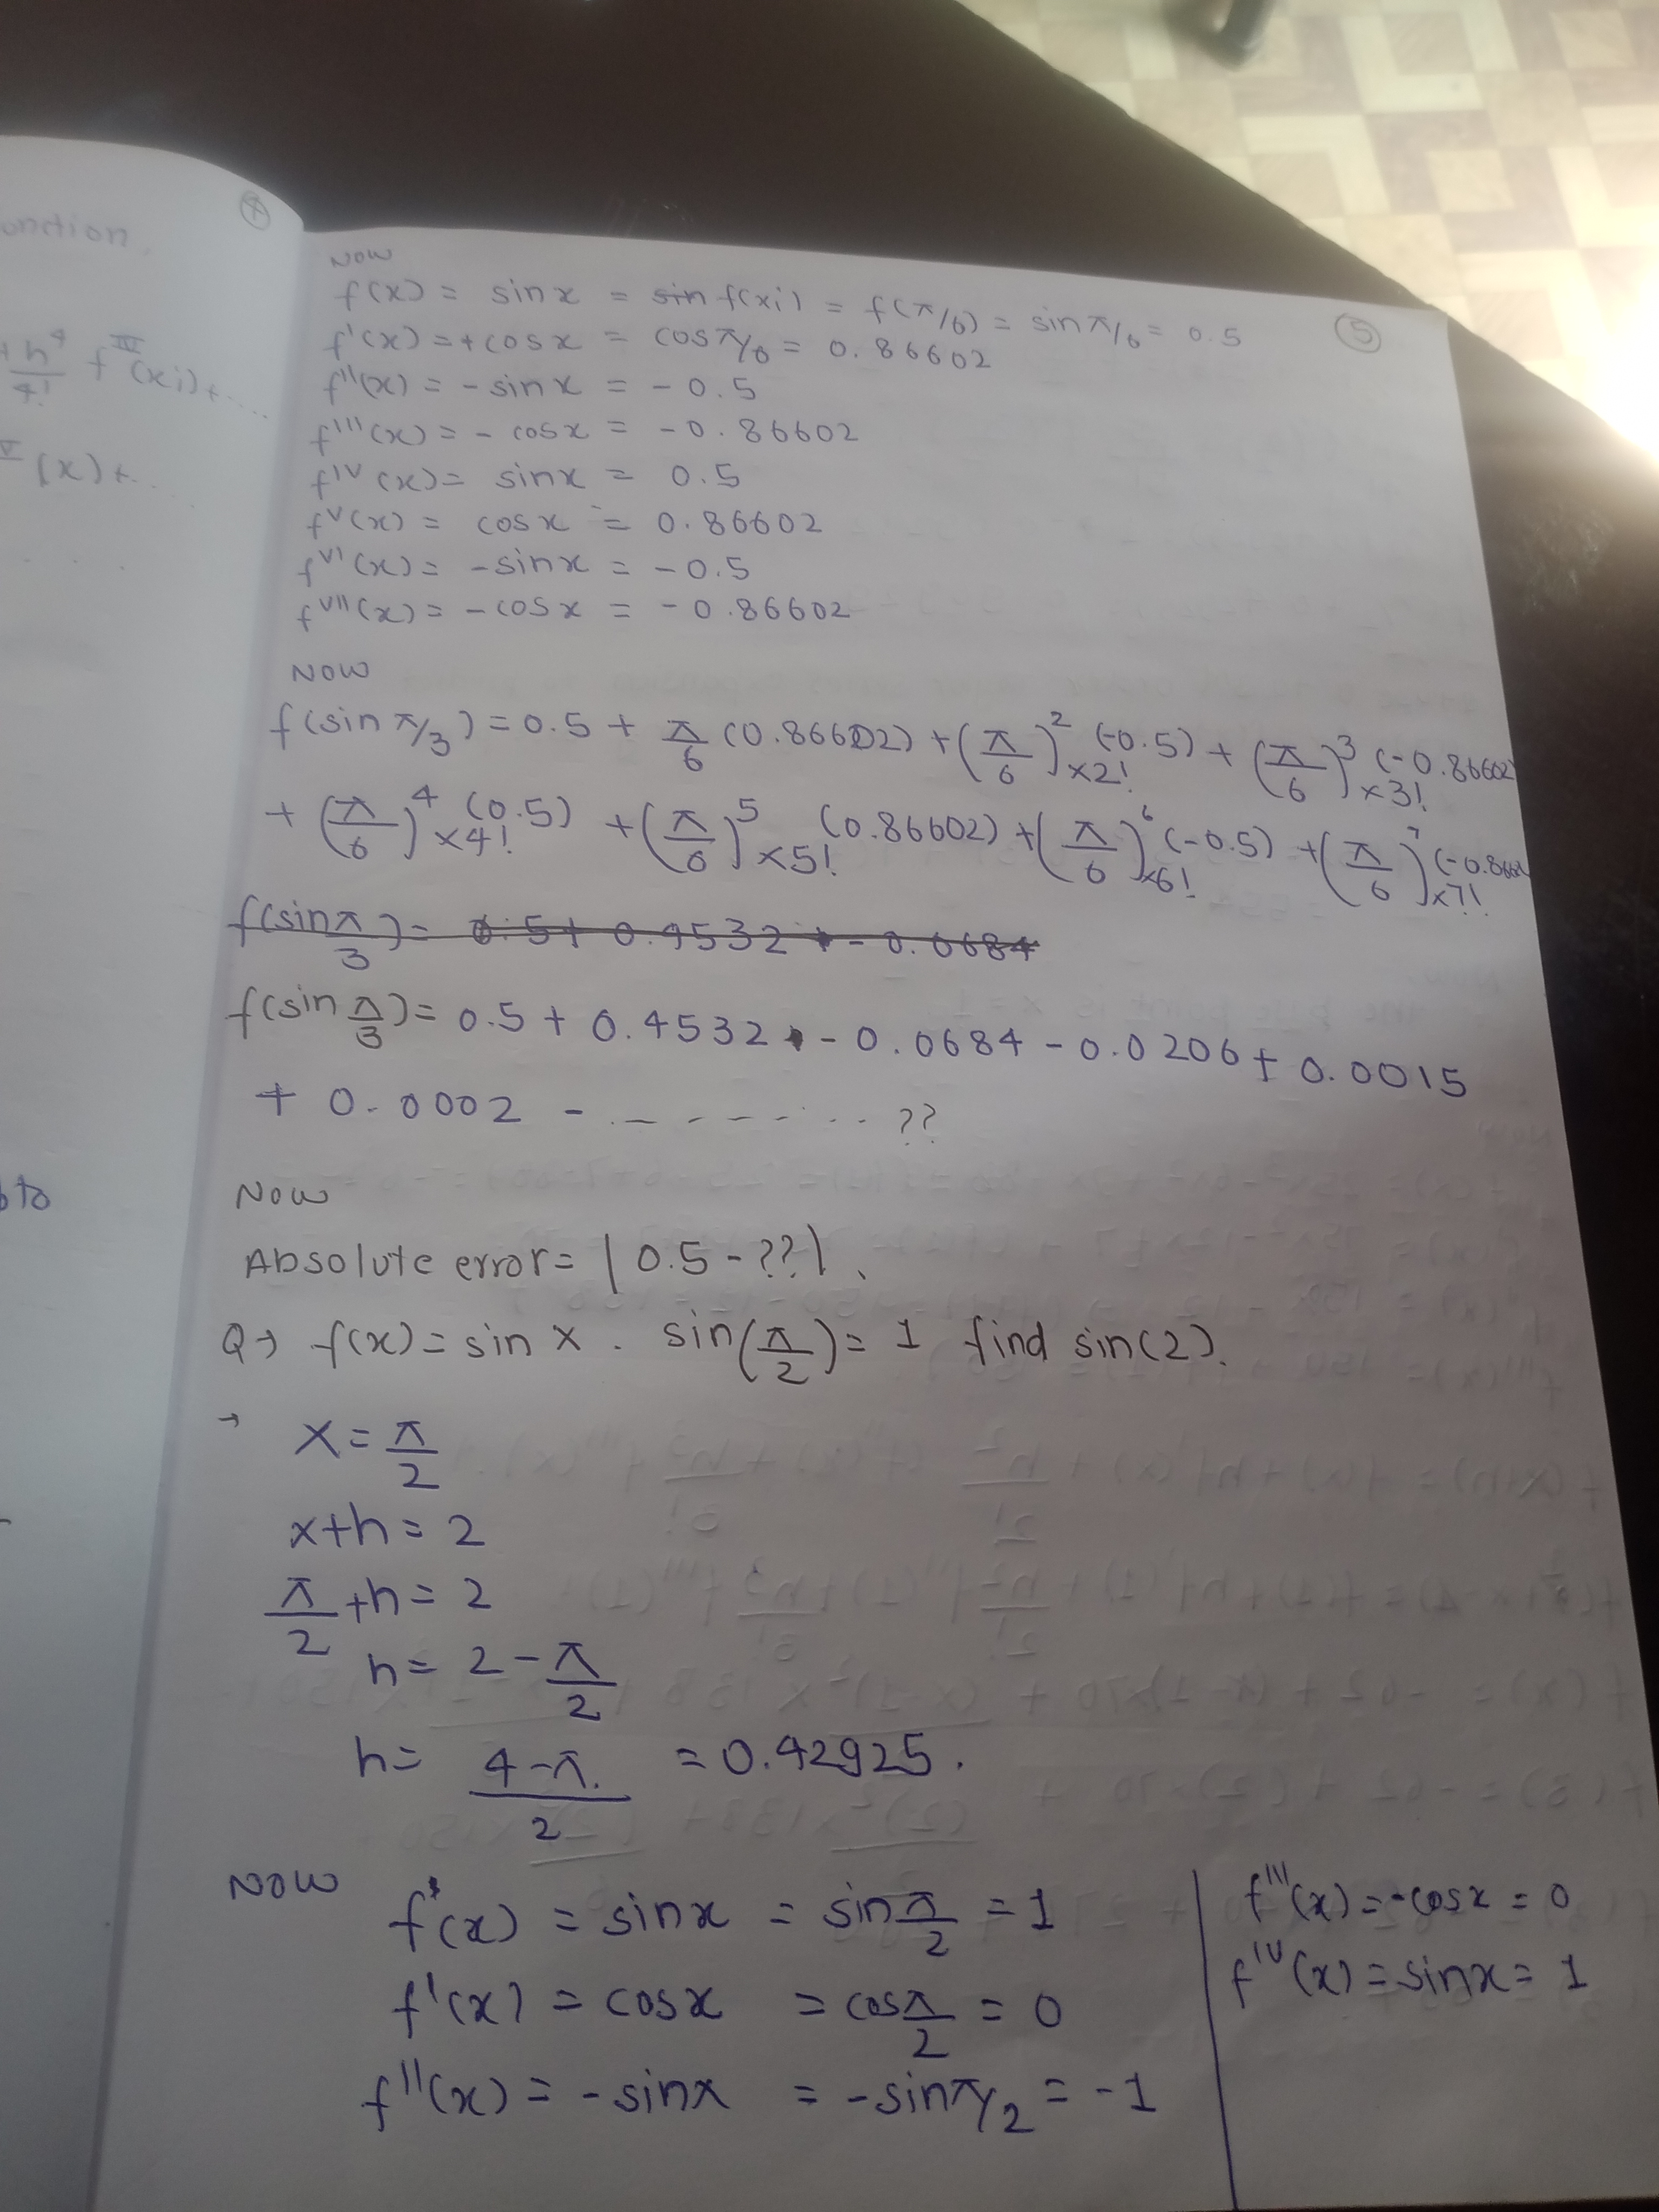 onction,
④
+ h⁴/4! f^IV(xi)+....
V(x)+....
to
⑤
NOW
f(x) = sinx = sin f(xi) = f(π/6) = sin π/6 = 0.5
f'(x) = +cosx = cos π/6 = 0.86602
f''(x) = -sinx = -0.5
f'''(x) = -cosx = -0.86602
f^IV(x) = sinx = 0.5
f^V(x) = cosx = 0.86602
f^VI(x) = -sinx = -0.5
f^VII(x) = -cosx = -0.86602
NOW
f(sin π/3) = 0.5 + π/6 (0.86602) + (π/6)²×2! (-0.5) + (π/6)³×3! (-0.86602)
+ (π/6)⁴×4! (0.5) + (π/6)⁵×5! (0.86602) + (π/6)⁶×6! (-0.5) + (π/6)⁷×7! (-0.8660
f(sin π/3) = 0.5 + 0.4532 + - 0.0684
f(sin π/3) = 0.5 + 0.4532 - 0.0684 - 0.0206 + 0.0015
+ 0.0002 - ........ ??
NOW
Absolute error = |0.5 - ??|.
Q→ f(x) = sin x . sin(π/2) = 1 find sin(2).
→ x = π/2
x+h = 2
π/2 + h = 2
h = 2 - π/2
h = 4-π./2 = 0.42925.
NOW f(x) = sinx = sin π/2 = 1
f'(x) = cosx = cos π/2 = 0
f''(x) = -sinx = -sin π/2 = -1
f'''(x) = -cosx = 0
f^IV(x) = sinx = 1